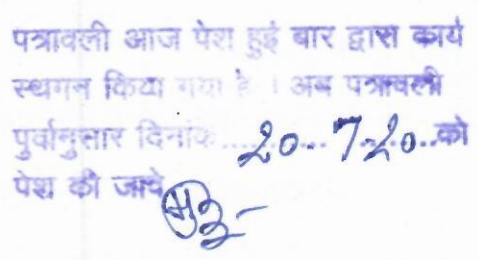 पत्रावली आज पेश हुई बार द्वारा कार्य
स्थगन किया गया है । अब पत्रावली
पुर्वानुसार दिनांक.......20-7-20...को
पेश की जावे